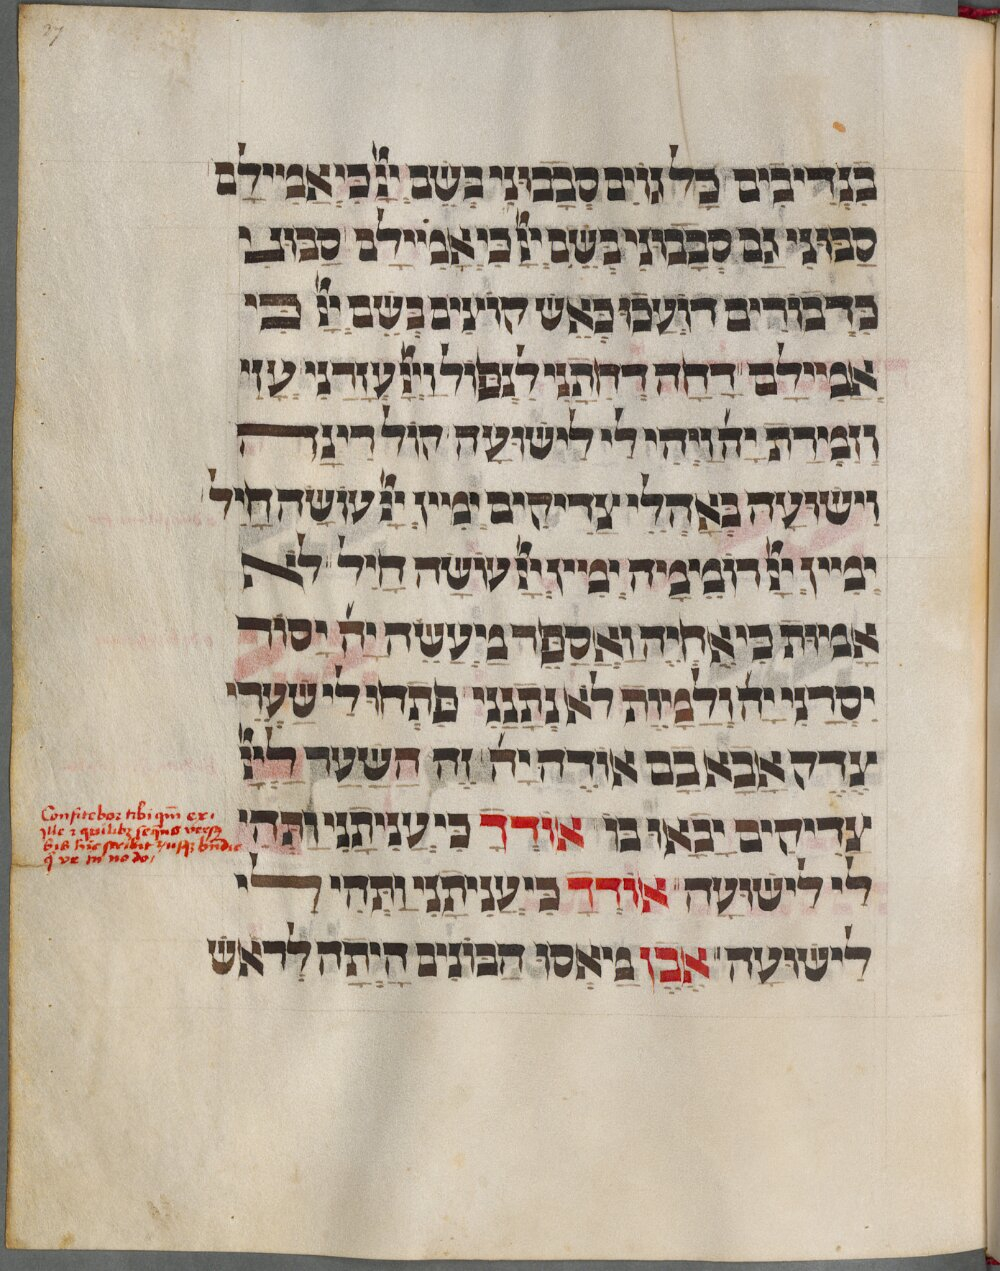 27
בנדיבים כל גוים סבבוני בשם יי כי אמילם
סבוני גם סבבוני בשם יי כי אמילם סבוני
כדבורים דועכו כאש קוצים בשם יי כי
אמילם דחה דחתני לנפול ויי עזרני עזי
וזמרת יה ויהי לי לישועה קול רינה
וישועה באהלי צדיקים ימין יי עושה חיל
ימין יי רוממה ימין יי עושה חיל לא
אמות כי אחיה ואספר מעשה יה יסור
יסרני יה ולמות לא נתנני פתחו לי שערי
צדק אבא בם אודה יה זה השער ליי
צדיקים יבאו בו אודך כי עניתני ותהי
לי לישועה אודך כי עניתני ותהי לי
לישועה אבן מאסו הבונים היתה לראש
Confitebor tibi qm̄ ex
ille ⁊ quilibꝫ sequēs versꝰ
bis hic scribit usqꝫ